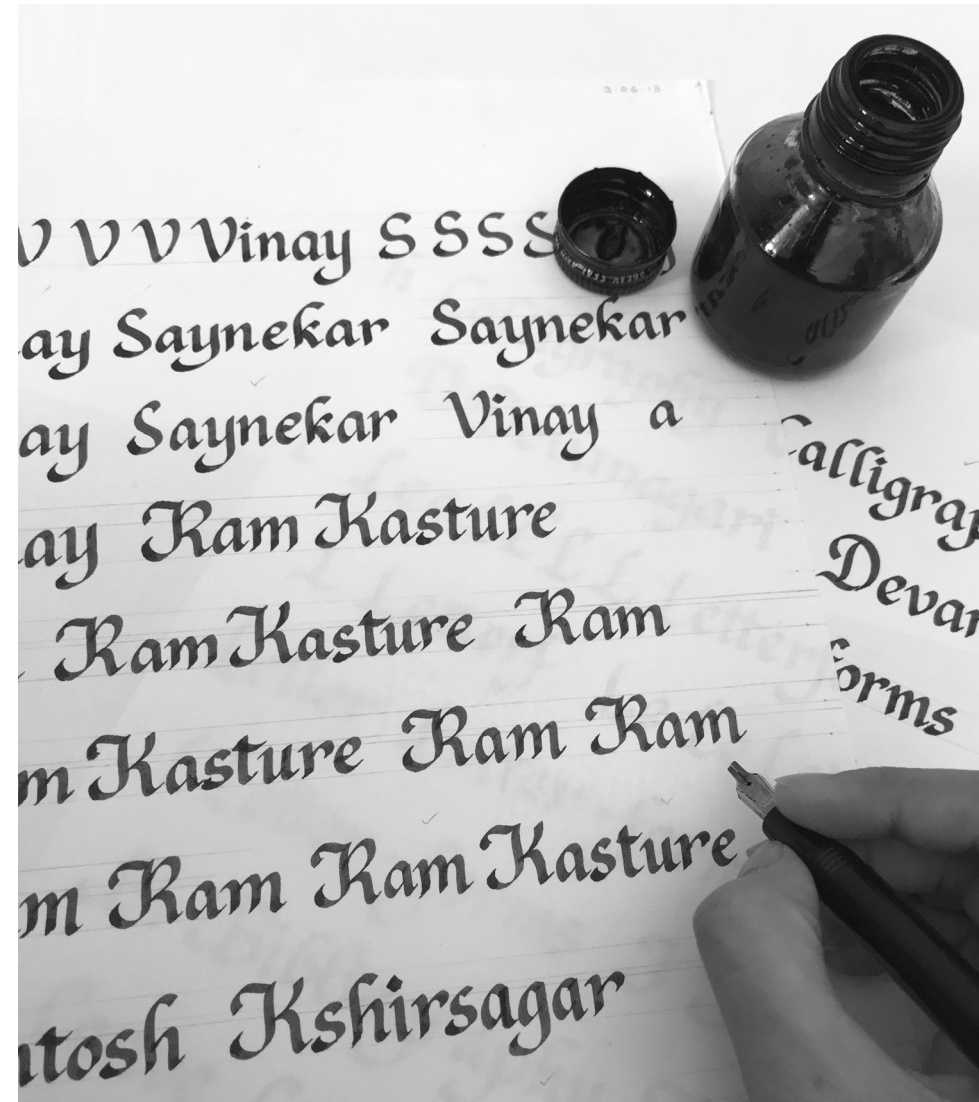 3-06-18
V V V Vinay S S S S
ay Saynekar Saynekar
ay Saynekar Vinay a
ay Ram Kasture
Ram Kasture Ram
m Kasture Ram Ram
m Ram Ram Kasture
ntosh Kshirsagar
Calligrap
Devan
forms